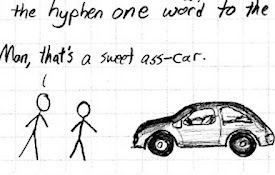 the hyphen one word to the
Man, that's a sweet ass-car.